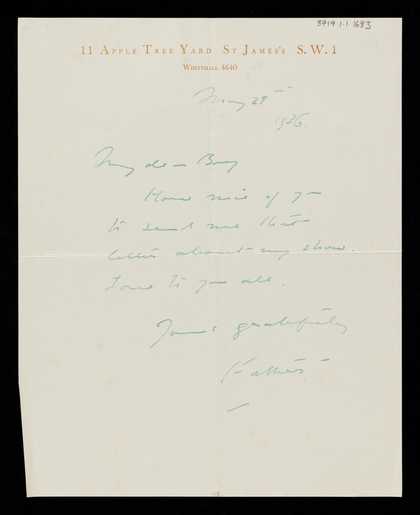 8919.1.1.1693
11 APPLE TREE YARD ST JAMES'S S.W.1
WHITEHALL 4640
May 28
1936.
My dear Boy
How nice of you
to send me that
letter about my show.
Love to you all.
Yours gratefully